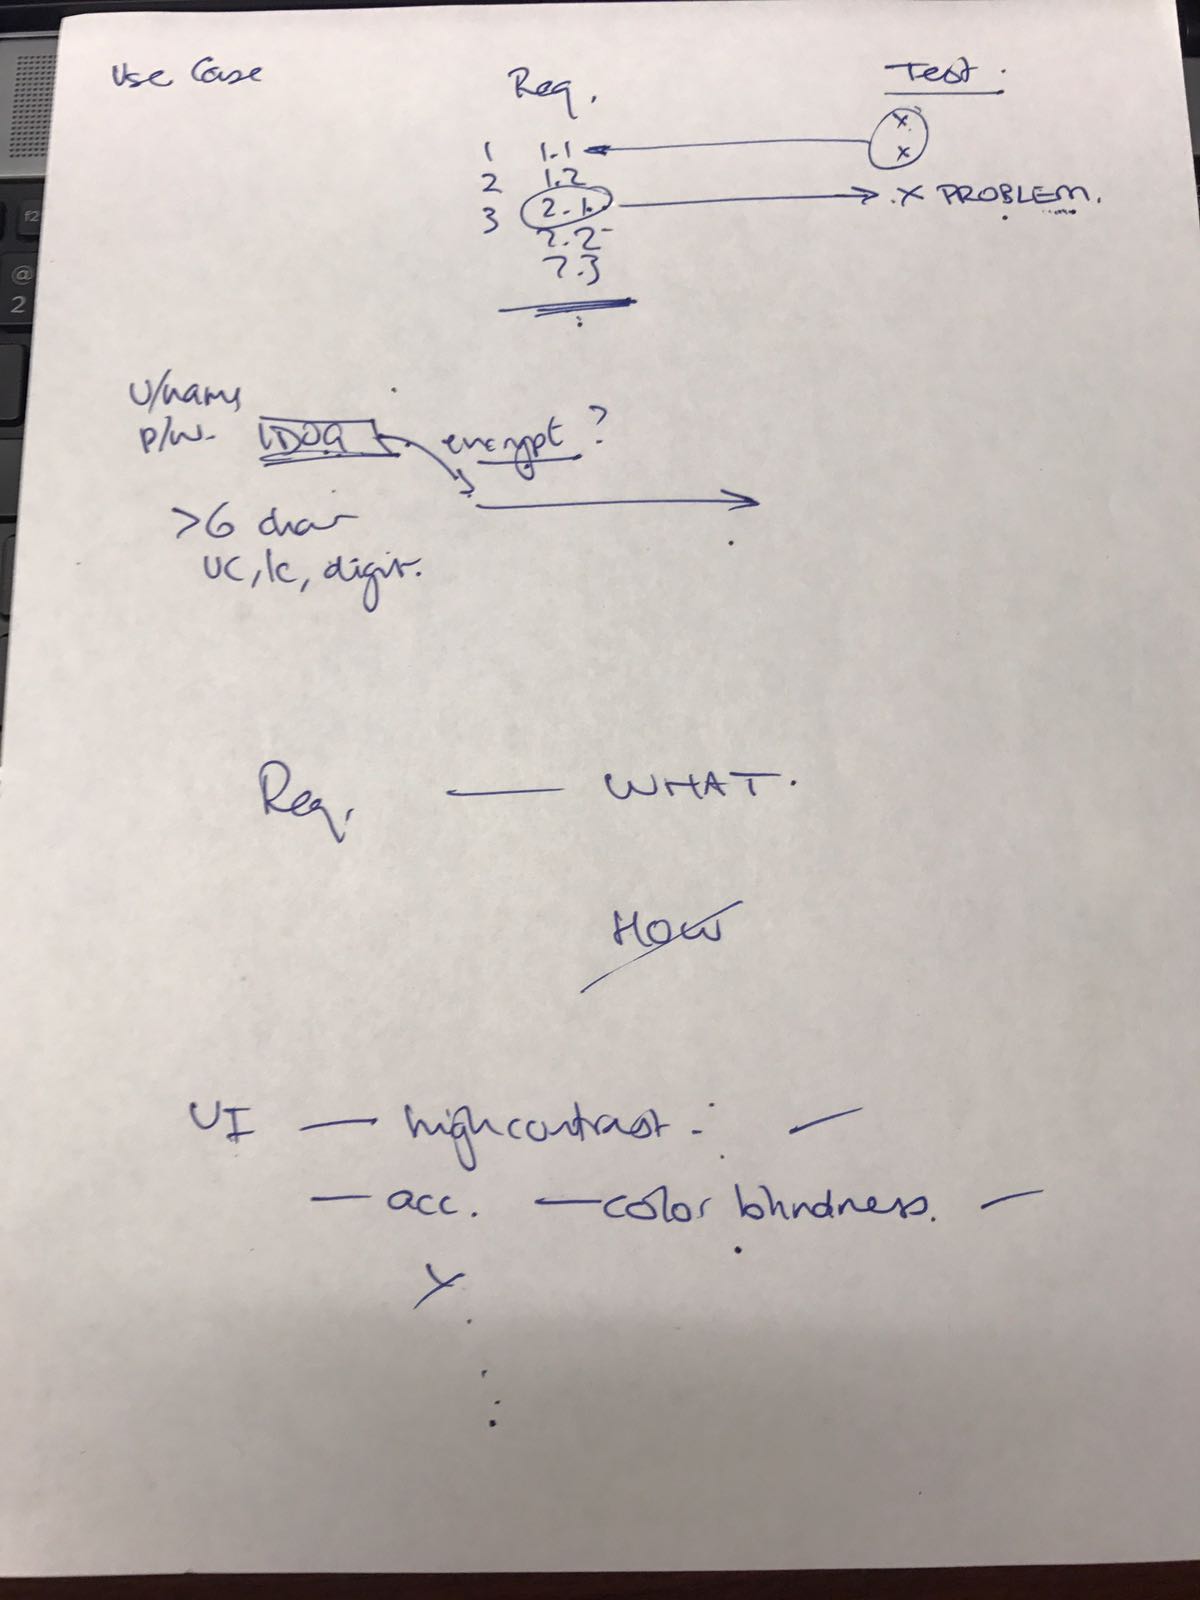 Use Case Req. Test.
1 1.1 x
2 1.2 x
3 2.1. .x PROBLEM.
2.2
2.3
U/name
p/w. encrypt?
>6 char
UC, lc, digit.
Req. — WHAT.
HOW
UI — high contrast.
— acc. — color blindness. —
f2
@
2